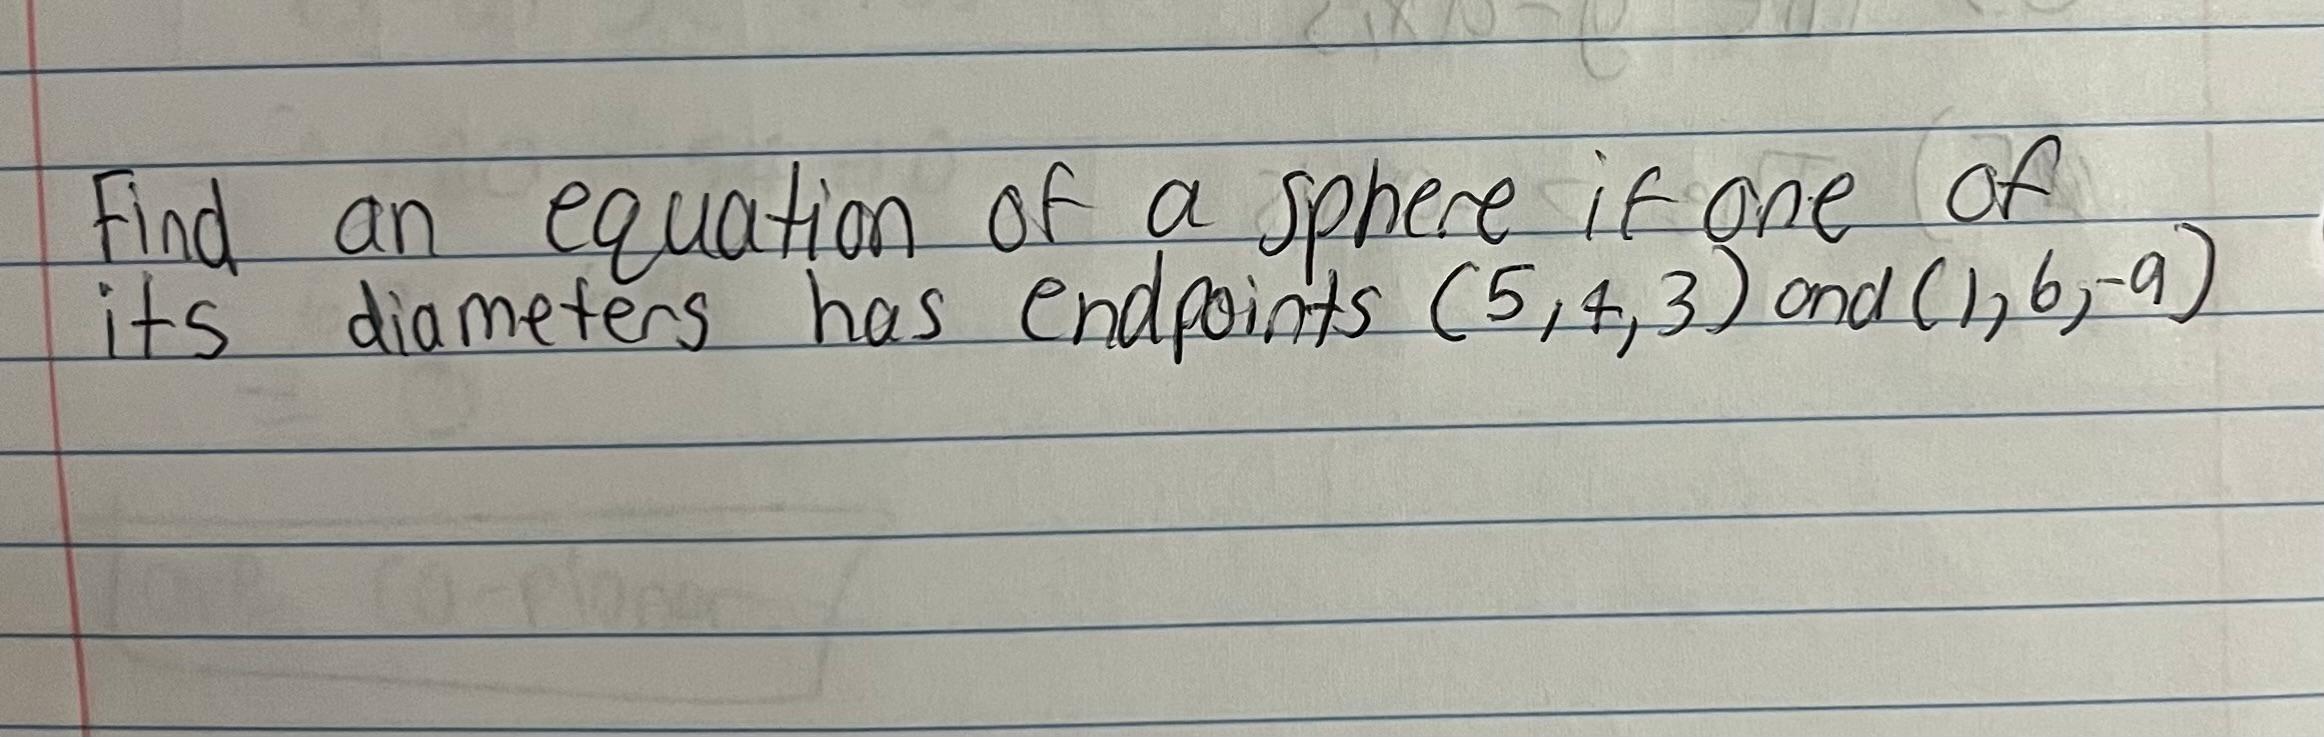 Find an equation of a sphere if one of
its diameters has endpoints (5,4,3) and (1,6,-9)